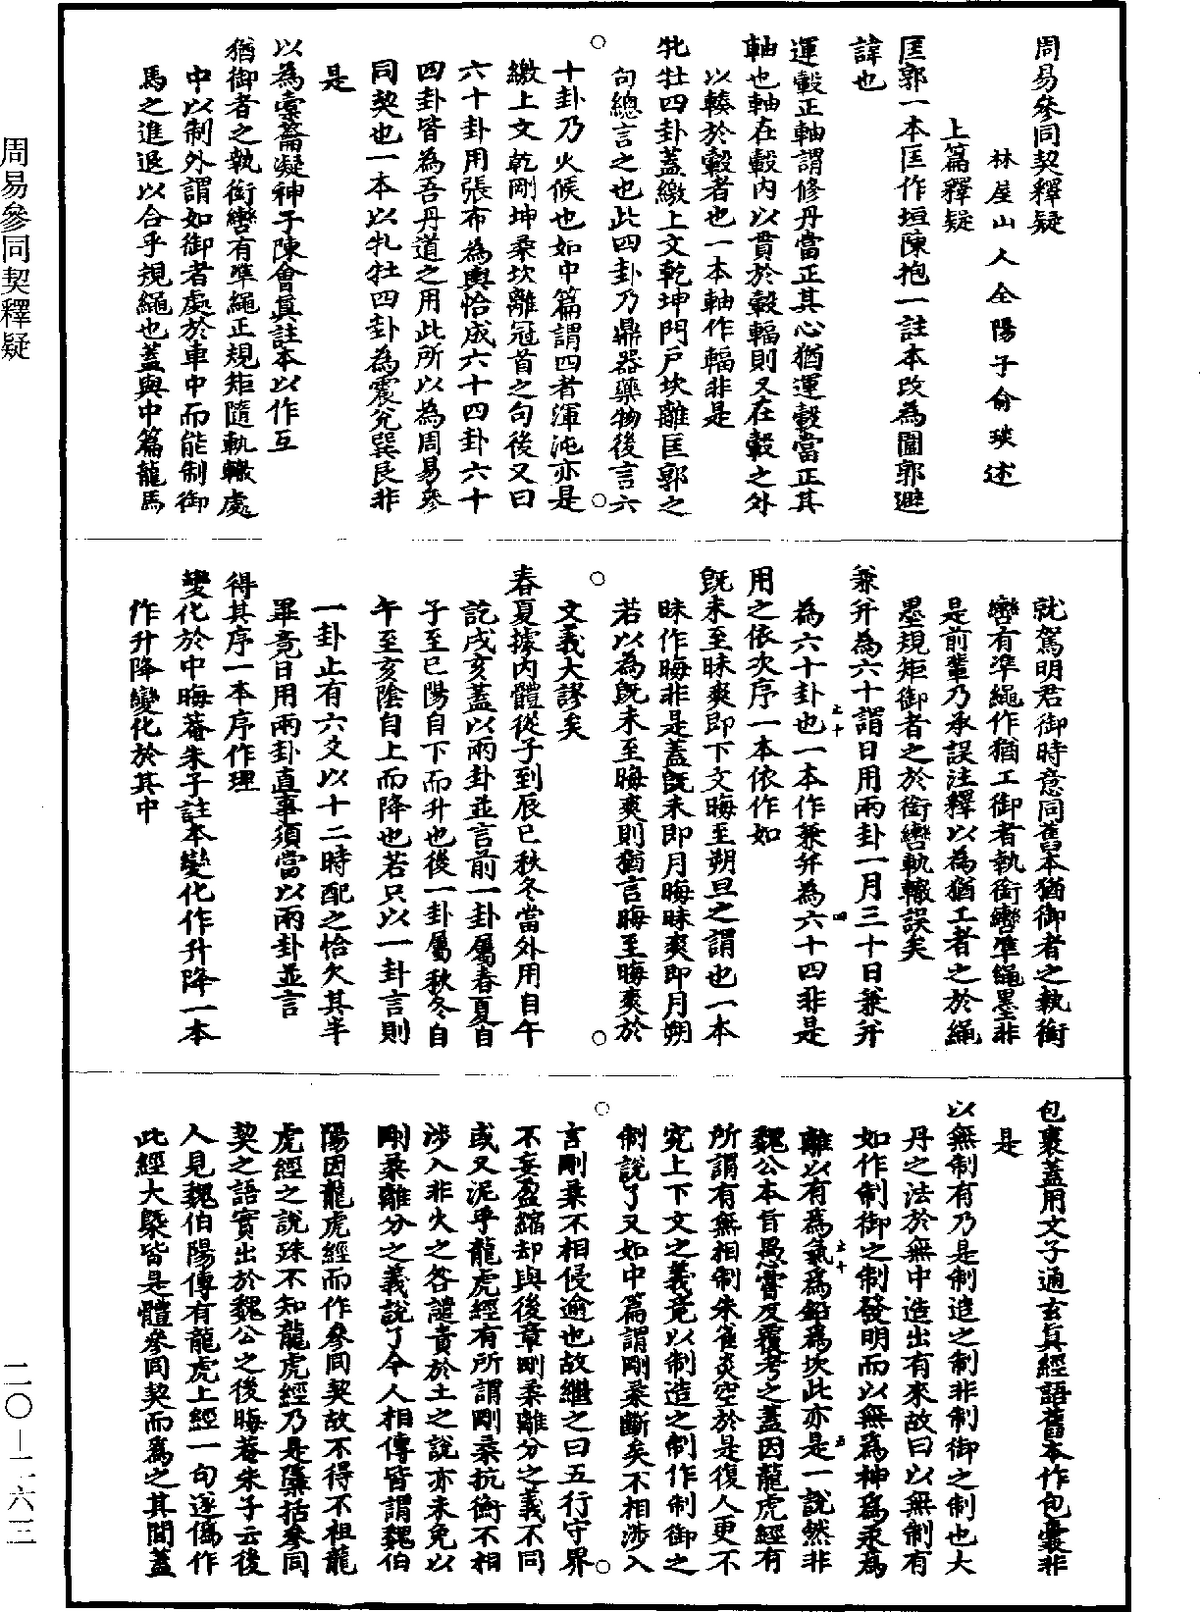 周易參同契釋疑
林屋山人全陽子俞琰述
上篇釋疑
匡郭一本匡作垣陳抱一註本改為圍郭避
諱也
運轂正軸謂修丹當正其心猶運轂當正其
軸也軸在轂內以貫於轂輻則又在轂之外
以輳於轂者也一本軸作輻非是
牝牡四卦蓋繳上文乾坤門戶坎離匡郭之
句總言之也此四卦乃鼎器藥物後言六
十卦乃火候也如中篇謂四者渾沌亦是
繳上文乾剛坤柔坎離冠首之句後又曰
六十卦用張布為輿恰成六十四卦六十
四卦皆為吾丹道之用此所以為周易參
同契也一本以牝牡四卦為震兌巽艮非
是
以為橐籥凝神子陳會真註本以作互
猶御者之執銜轡有準繩正規矩隨軌轍處
中以制外謂如御者處於車中而能制御
馬之進退以合乎規繩也蓋與中篇龍馬
就駕明君御時意同舊本猶御者之執銜
轡有準繩作猶工御者執銜轡準繩墨非
是前輩乃承誤注釋以為猶工者之於繩
墨規矩御者之於銜轡軌轍誤矣
兼并為六十謂日用兩卦一月三十日兼并
為六十卦也一本作兼并為六十四非是
用之依次序一本依作如
既未至昧爽即下文晦至朔旦之謂也一本
昧作晦非是蓋既未即月晦昧爽即月朔
若以為既未至晦爽則猶言晦至晦爽於
文義大謬矣
春夏據內體從子到辰巳秋冬當外用自午
訖戌亥蓋以兩卦並言前一卦屬春夏自
子至巳陽自下而升也後一卦屬秋冬自
午至亥陰自上而降也若只以一卦言則
一卦止有六爻以十二時配之恰欠其半
畢竟日用兩卦直事須當以兩卦並言
得其序一本序作理
變化於中晦菴朱子註本變化作升降一本
作升降變化於其中
包裹蓋用文子通玄真經語舊本作包囊非
是
以無制有乃是制造之制非制御之制也大
丹之法於無中造出有來故曰以無制有
如作制御之制發明而以無為神為汞為
離以有為氣為鉛為坎此亦是一說然非
魏公本旨愚嘗反覆考之蓋因龍虎經有
所謂有無相制朱雀炎空於是復人更不
究上下文之義竟以制造之制作制御之
制說了又如中篇謂剛柔斷矣不相涉入
言剛柔不相侵逾也故繼之曰五行守界
不妄盈縮却與後章剛柔離分之義不同
或又泥乎龍虎經有所謂剛柔抗衡不相
涉入非火之咎譴責於土之說亦未免以
剛柔離分之義說了今人相傳皆謂魏伯
陽因龍虎經而作參同契故不得不祖龍
虎經之說殊不知龍虎經乃是檃括參同
契之語實出於魏公之後晦菴朱子云後
人見魏伯陽傳有龍虎上經一句遂偽作
此經大槩皆是體參同契而為之其間蓋
周易參同契釋疑
二〇－二六三